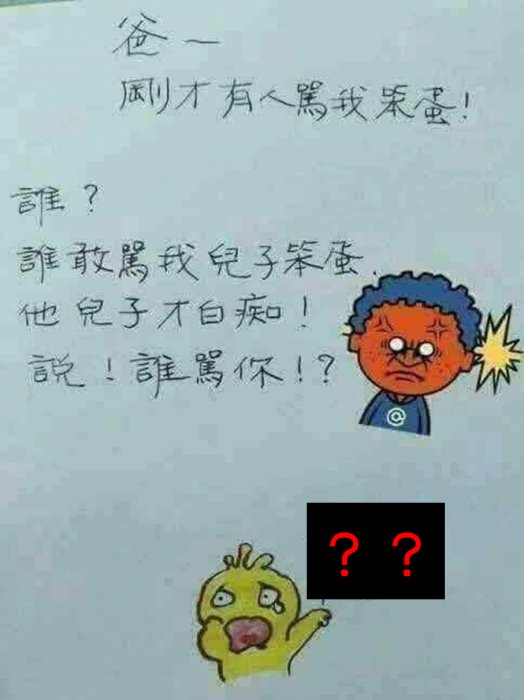 爸一
剛才有人罵我笨蛋!
誰?
誰敢罵我兒子笨蛋.
他兒子才白痴!
說!誰罵你!?
@
? ?